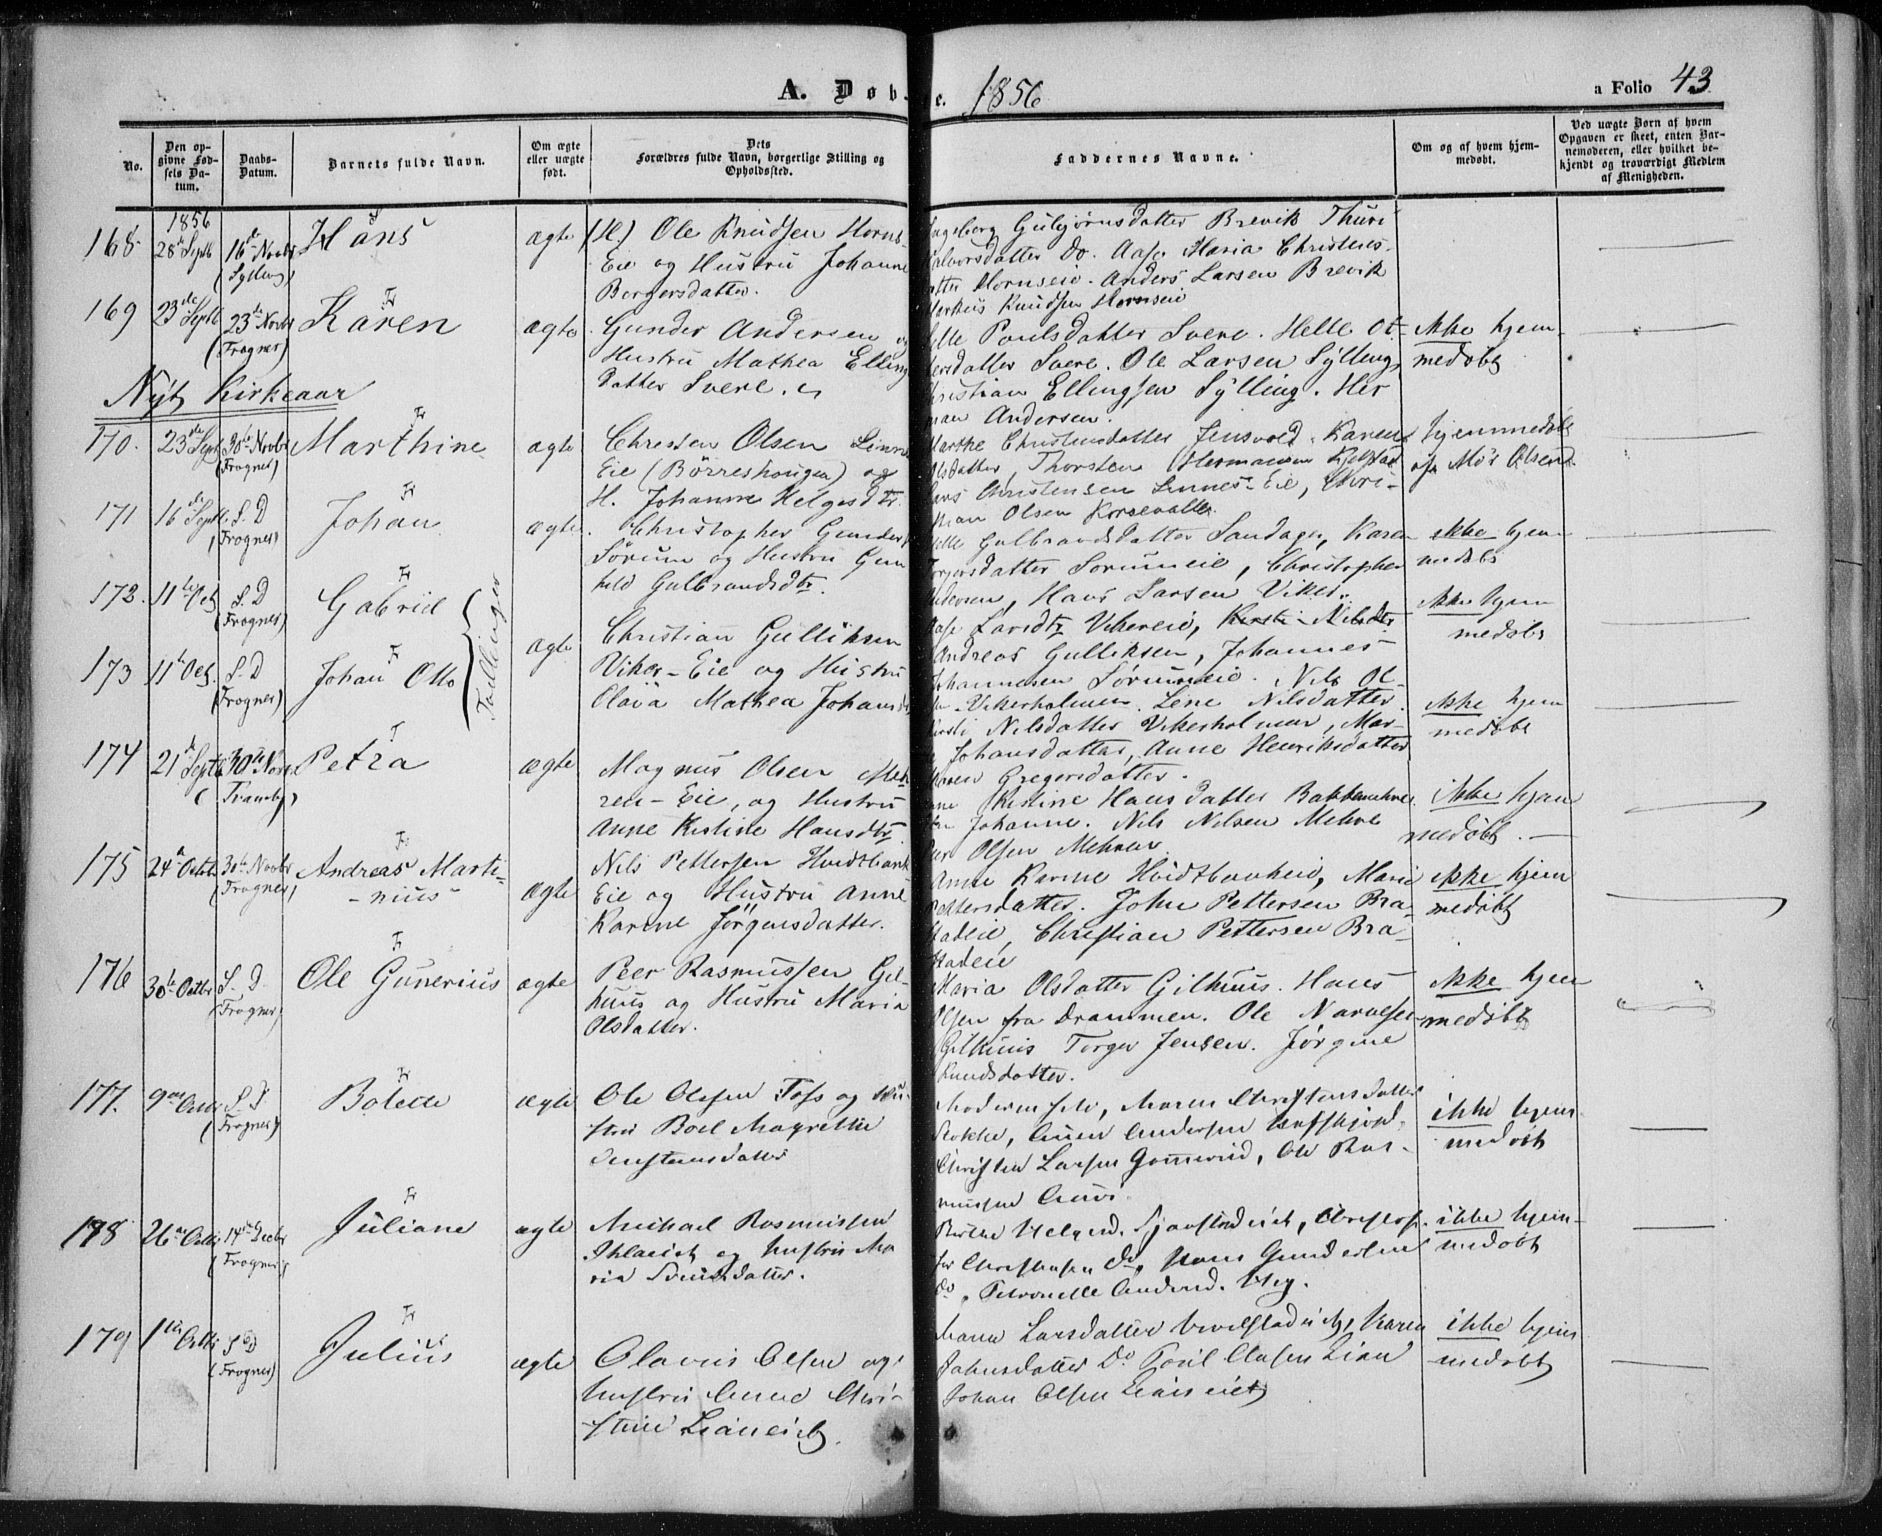 A. Døb e. 1856 a Folio 43
No. Den opgivne Fødsels Datum. Daabs-Datum. Barnets fulde Navn. Om ægte eller uægte født. Dets Forældres fulde Navn, borgerlige Stilling og Opholdssted. Faddernes Navne. Om og af hvem hjemmedøbt. Ved uægte Børn af hvem Opgaven er skeet, enten Barnemoderen, eller hvilket bekjendt og troværdigt Medlem af Menigheden.
1856
168 28de Septb 16de Novbr (Sylling) Hans ægte (H) Ole Knudsen Horns-
Eie og Hustru Johanne
Borgersdatter.
Ingeborg Gulbjørnsdatter Brevik Thuri
Halvorsdatter Do. Aase Maria Christens-
datter Hornseie. Anders Larsen Brevik
Markus Knudsen Hornseie
169 23de Septb 23de Novbr (Frogner) Karen ægte Gunder Andersen og
Hustru Mathea Elling
datter Svere.
Helle Poulsdatter Svere. Helle Ot-
tersdatter Svere. Ole Larsen Sylling,
Christian Ellingsen Sylling. Her
man Andersen.
ikke hjem-
medøbt
Nyt Kirkeaar
170. 23de Septb 30te Novbr (Frogner) Marthine ægte Christen Olsen Linnes
Eie (Børreshougen) og
H. Johanne Helgesdtr.
Marthe Christensdatter Jensvold. Karen
Olsdatter, Thorsten Hermansen Kjelstad
Lars Christensen Linnes-Eie, Chri-
stian Olsen Korsevallen
hjemmedøbt
af Mo's Olsen
171 16de Septb S. D (Frogner) Johan ægte. Christopher Gunders
Sørum og Hustru Gun
hild Gulbrandsdtr.
Helle Gulbrandsdatter Sandager, Karen
Torgersdatter Sørumeie, Christopher
Andersen, Hans Larsen Viker.
ikke hjem
medøbt
172. 11te Oct S. D (Frogner) Gabriel
173 11te Oct. S. D (Frogner) Johan Otto
Tvillinger
ægte Christian Gulliksen
Viker-Eie og Hustru
Olava Mathea Johansdtr
Aase Larsdtr Vikereie, Kirsti Nilsdtr
Andreas Gulliksen, Johannes
Johannesen Sørumeie. Nils Ol-
sen Vikerholmen. Lene Nilsdatter
Kirsti Nilsdatter Vikerholmen, Mar-
Johansdatter, Anne Henriksdatter
Maren Gregersdatter.
ikke hjem
medøbt
ikke hjem
medøbt
174 21de Septb 30te Novbr (Tranby) Petra ægte Magnus Olsen Meh
ren-Eie, og Hustru
Anne Kirstine Hansdtr
Kirstine Hansdatter Bakkemehren
Johanne. Nils Nilsen Mehre
Olsen Mehren.
ikke hjem
medøbt.
175 24de Octbr 30te Novbr (Frogner) Andreas Marti-
-nius-
ægte Nils Pettersen Hvidtbank
Eie og Hustru Anne
Karine Jørgensdatter.
Anne Karine Hvidtbankeie, Marie
Pettersdatter. John Pettersen Bra-
stadeie, Christian Pettersen Bra-
stadeie
ikke hjem
medøbt
176 30te Octbr S. D. (Frogner) Ole Gunerius ægte Peer Rasmussen Gil-
huus og Hustru Maria
Olsdatter.
Maria Olsdatter Gilhuus. Hans
Olsen fra Drammen. Ole Narvesen
Gilhuus Torger Jensen. Jørgine
Knudsdatter.
ikke hjem
medøbt
177. 9de Octbr S. D (Frogner) Bolette ægte Ole Olesen Foss og Hu-
stru Boel Magrethe
Christensdatter
Moderen selv, Maren Christensdatter
Stokke, Andersen
Christen Larsen Gommerud, Ole Ras-
mussen Huus.
ikke hjem-
medøbt
178 26de Octbr 14de Decbr (Frogner) Juliane ægte Michael Rasmussen
og Hustru Ma
ria Svendsdatter.
Birthe Helgesd. Christof-
fer Christensen Do, Hans Gundersen
Do, Petronelle Andersd.
ikke hjem-
medøbt
179 1ste Octbr S D (Frogner) Julius ægte Olavus Olsen og
Hustru Anne Chri-
stine Lianeiet.
Maria Larsdatter Karen
Johnsdatter Do Poul Olafsen Lian
Johan Olsen Lianseiet
ikke hjem
medøbt